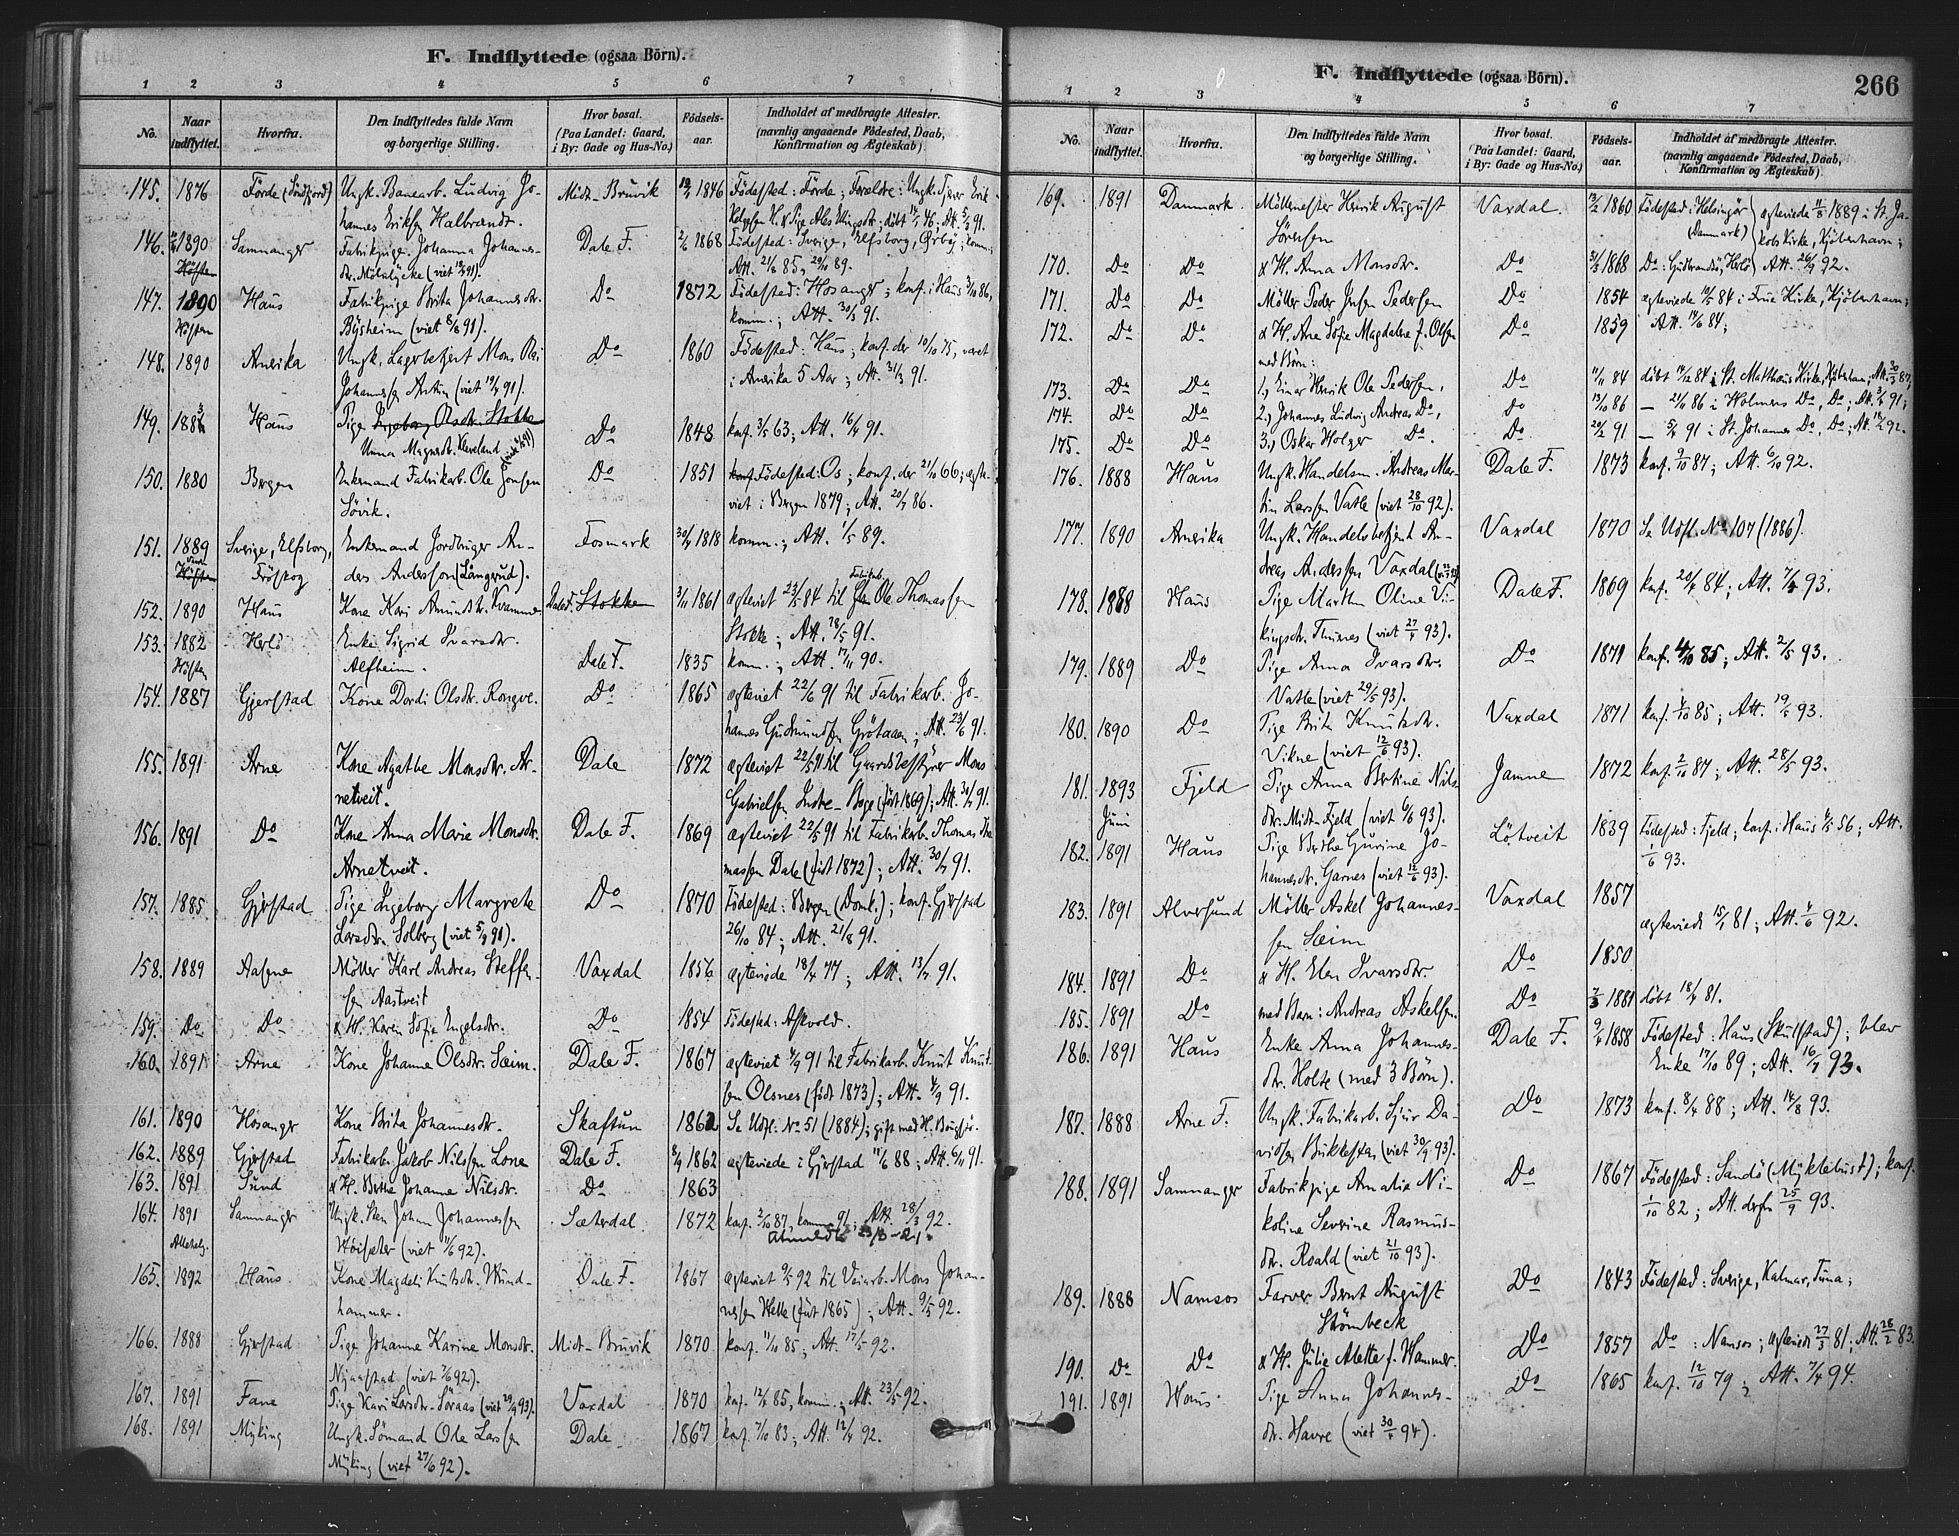 F. Indflyttede (ogsaa Börn).
1 2 3 4 5 6 7
No. Naar indflyttet. Hvorfra. Den Indflyttedes fulde Navn og borgerlige Stilling. Hvor bosat. (Paa Landet: Gaard, i By: Gade og Hus-No.) Födsels-aar. Indholdet af medbragte Attester. (navnlig angaaende Födested, Daab, Konfirmation og Ægteskab).
145. 1876 Förde (Söndfjord) Ungk. Banearb. Ludvig Jo- Midt-Bruvik 1846 Födested: Förde; Forældre: Ungk.
hannes Eriksen Halbrandt.
146. 1890 Samnanger Fabrikpige Johanna Johannes- Dale F. 2/6 1868 Födested: Sverige, Elfsborg,
Att. 21/8 85, 29/11 89.
147. 1890 Haus Fabrikpige Brita Johannesdr. Do 1872 Födested: Hosanger; konf. i Haus 3/10 86,
Höften Bysheim (viet 8/8 91). komm.; Att. 30/3 91.
148. 1890 Amerika Ungk. Lagerbetjent Mons Do 1860 Födested: Haus; konf. der 10/10 75, været
i Amerika 5 Aar; Att. 31/3 91.
149. Haus Pige Ingeborg Olsdr. Stokke Do 1848 konf. 3/5 63; Att. 16/4 91.
Unna Magnesdr. Kleveland
150. 1880 Bergen Enkemand Fabrikarb. Ole Jonsen Do 1851 Födested: Os; konf. der 21/10 66; ægte-
Sövik. viet i Bergen 1879; Att. 20/7 86.
151. 1889 Sverige, Elfsborg, Enkemand Jordbruger An- Fosmark 1818 komm.; Att. 1/5 89.
Fröskog ders Andersson (Långerud).
152. 1890 Haus Kone Kari Amundsdr. Kvamme Dale F. Stokke 3/11 1861 ægteviet 23/5 84 til Ole Thomassen
Stokke; Att. 18/5 91.
153. 1882 Herlö Enke Sigrid Ivarsdr.
Höften Alfheim. Dale F. 1835 komm.; Att. 17/11 90.
154. 1887 Gjerstad Kone Dordi Olsdr. Rongve. Do 1865 ægteviet 22/6 91 til Fabrikarb. Jo-
hannes Gudmundsen Grötaaen; Att. 23/6 91.
155. 1891 Arne Kone Agathe Monsdr. Ar- Dale 1872 ægteviet 22/5 91 til Gaardsbestyrer Mons
netveit. Gabrielsen Indre-Boge (født 1869); Att. 30/7 91.
156. 1891 Do Kone Anna Marie Monsdr. Dale F. 1869 ægteviet 22/5 91 til Fabrikarb. Thomas Tho-
Arnetveit. massen Dale (født 1872); Att. 30/7 91.
157. 1885 Gjerstad Pige Ingeborg Margrete Do 1870 Födested: Bergen (Domk.); konf. Gjerstad
Larsdtr. Solberg (viet 5/9 91). 26/10 84; Att. 21/8 91.
158. 1889 Aafjene Möller Karl Andreas Steffen- Vaxdal 1856 ægteviede 18/4 77; Att. 13/7 91.
sen Aastveit
159. Do Do & H. Karen Sofie Engelsdr. Do 1854 Födested: Askvold.
160. 1891 Arne Kone Johanne Olsdr. Seim. Dale F. 1867 ægteviet 4/9 91 til Fabrikarb. Knut Knut-
sen Olsnes (født 1873); Att. 4/9 91.
161. 1890 Hosanger Kone Brita Johannesdtr. Skaftun 1862 Se Udfl. No 51 (1884); gift med H.
162. 1889 Gjerstad Fabrikarb. Jakob Nilssen Lone Dale F. 8/9 1862 ægteviede i Gjerstad 11/6 88; Att. 6/11 91.
163. 1891 Sund & H. Berthe Johanne Nilsdr. Do 1863
164. 1891 Samnanger Ungk. Sten Johan Johannessen Sæterdal 1872 konf. 2/10 87, komm. 91; Att. 28/3 92.
Allehelg. Höisæter (viet 11/6 92).
165. 1892 Haus Kone Magdeli Knutsdr. Wind- Dale F. 1867 ægteviet 9/5 92 til Veiarb. Mons Johan-
hammer. nesen Helle (født 1865); Att. 9/5 92.
166. 1888 Gjerstad Pige Johanne Karine Monsdr. Midt-Bruvik 1870 konf. 11/10 85; Att. 17/5 92.
Njaastad (viet 7/6 92).
167. 1891 Fane Pige Kari Larsdr. Söraas (viet 29/9 93). Vaxdal 1870 konf. 12/4 85, komm.; Att. 23/5 92.
168. 1891 Myking Ungk. Sömand Ole Larssen Dale 1867 konf. 7/10 83; Att. 12/4 92.
Myking (viet 27/6 92).
F. Indflyttede (ogsaa Börn). 266
1 2 3 4 5 6 7
No. Naar indflyttet. Hvorfra. Den Indflyttedes fulde Navn og borgerlige Stilling. Hvor bosat. (Paa Landet: Gaard, i By: Gade og Hus-No.) Födsels-aar. Indholdet af medbragte Attester. (navnlig angaaende Födested, Daab, Konfirmation og Ægteskab).
169. 1891 Danmark Möllemester Henrik August Vaxdal. 13/2 1860 Födested: Helsingör ægteviede 11/8 1889 i St. Ja-
Sörensen (Danmark) kobs Kirke, Kjöbenhavn;
170. Do Do & H. Anna Monsdtr. Do 31/3 1868 Do: Herlö Att. 26/9 92.
171. Do Do Möller Peder Jensen Pedersen Do 1854 ægteviede 10/5 84 i Frue Kirke, Kjöbenhavn;
172. Do Do & H. Ane Sofie Magdalene f. Olsen Do 1859 Att. 19/6 84;
med Börn:
173. Do Do 1., Einar Henrik Ole Pedersen, Do 11/11 84 döbt 14/12 84 i St. Matthæus Kirke, Kjöbenhavn, Att. 30/3 87;
174. Do Do 2., Johannes Ludvig Andreas Do, Do 13/10 86 — 21/11 86 i Holmens Do, Do; Att. 91;
175. Do Do 3., Oskar Holger Do. Do 20/2 91 — 5/4 91 i St. Johannes Do, Do; Att. 92.
176. 1888 Haus Ungk. Handelsm. Andreas Mar- Dale F. 1873 konf. 9/10 87; Att. 6/10 92.
tin Larssen Vatle (viet 28/10 92).
177. 1890 Amerika Ungk. Handelsbetjent An- Vaxdal 1870 Se Udfl. No 107 (1886).
dreas Anderssen Vaxdal
178. 1888 Haus Pige Marthe Oline Vi- Dale F. 1869 konf. 20/4 84; Att. 7/4 93.
kingsdr. Thunes (viet 27/4 93).
179. 1889 Do Pige Anna Ivarsdr. Do 1871 konf. 4/10 85; Att. 2/5 93.
Vatle (viet 29/5 93).
180. 1890 Do Pige Brita Knutsdr. Vaxdal 1871 konf. 4/10 85; Att. 19/5 93.
Vikne (viet 12/6 93).
181. 1893 Fjeld Pige Anna Bertine Nils- Jamne 1872 konf. 2/10 87; Att. 28/5 93.
Juni dtr. Midt-Fjeld (viet 6/6 93).
182. 1891 Haus Pige Berthe Gurine Jo- Lötveit 1839 Födested: Fjeld; konf. i Haus 4/5 56; Att.
hannesdr. Garnes (viet 12/6 93). 1/6 93.
183. 1891 Alversund Möller Askel Johannes- Vaxdal 1857
sen Seim ægteviede 15/1 81; Att. 4/6 92.
184. 1891 Do & H. Elen Ivarsdtr. Do 1850
185. 1891 Do med Barn: Andreas Askelsen. Do 2/3 1881 döbt 18/4 81.
186. 1891 Haus Enke Anna Johannes- Dale F. 9/4 1858 Födested: Haus (Skulstad); blev
dr. Holte (med 3 Börn). Enke 17/10 89; Att. 16/7 93.
187. 1888 Arne F. Ungk. Fabrikarb. Sjur Da- Do 1873 konf. 8/4 88; Att. 14/8 93.
vidsen Bukkesten (viet 30/9 93).
188. 1891 Samnanger Fabrikpige Amalie Ni- Do 1867 Födested: Sandö (Myklebust); konf.
koline Severine Rasmus- 1/10 82; Att. derfra 25/9 93.
dr. Roald (viet 21/10 93).
189. 1888 Namsos Farver Bernt August Do 1843 Födested: Sverige, Kalmar, Tuna;
Strömbeck
190. Do Do & H. Julie Alette f. Hammer. Do 1857 Do: Namsos; ægteviede 27/3 81; Att. 28/2 83.
191. 1891 Haus Pige Anna Johannes- Do 1865 konf. 12/10 79; Att. 7/4 94.
dr. Havre (viet 30/4 94).